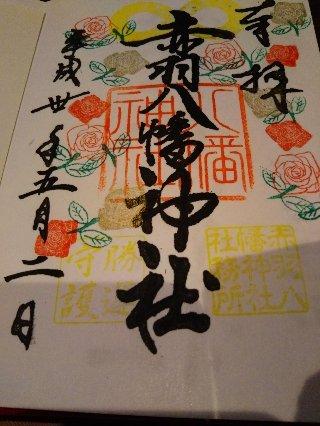 奉拝
赤羽八幡神社
平成卅一年五月二日
八幡
神社
赤羽八
幡神社
社務所
勝運
守護